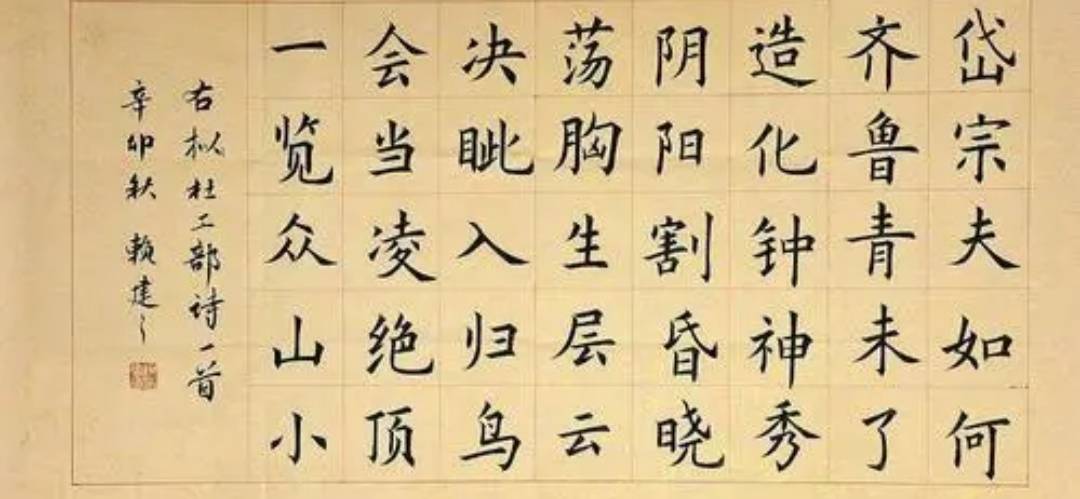 岱宗夫如何
齐鲁青未了
造化钟神秀
阴阳割昏晓
荡胸生层云
决眦入归鸟
会当凌绝顶
一览众山小
右杜工部诗一首
辛卯秋 赖建